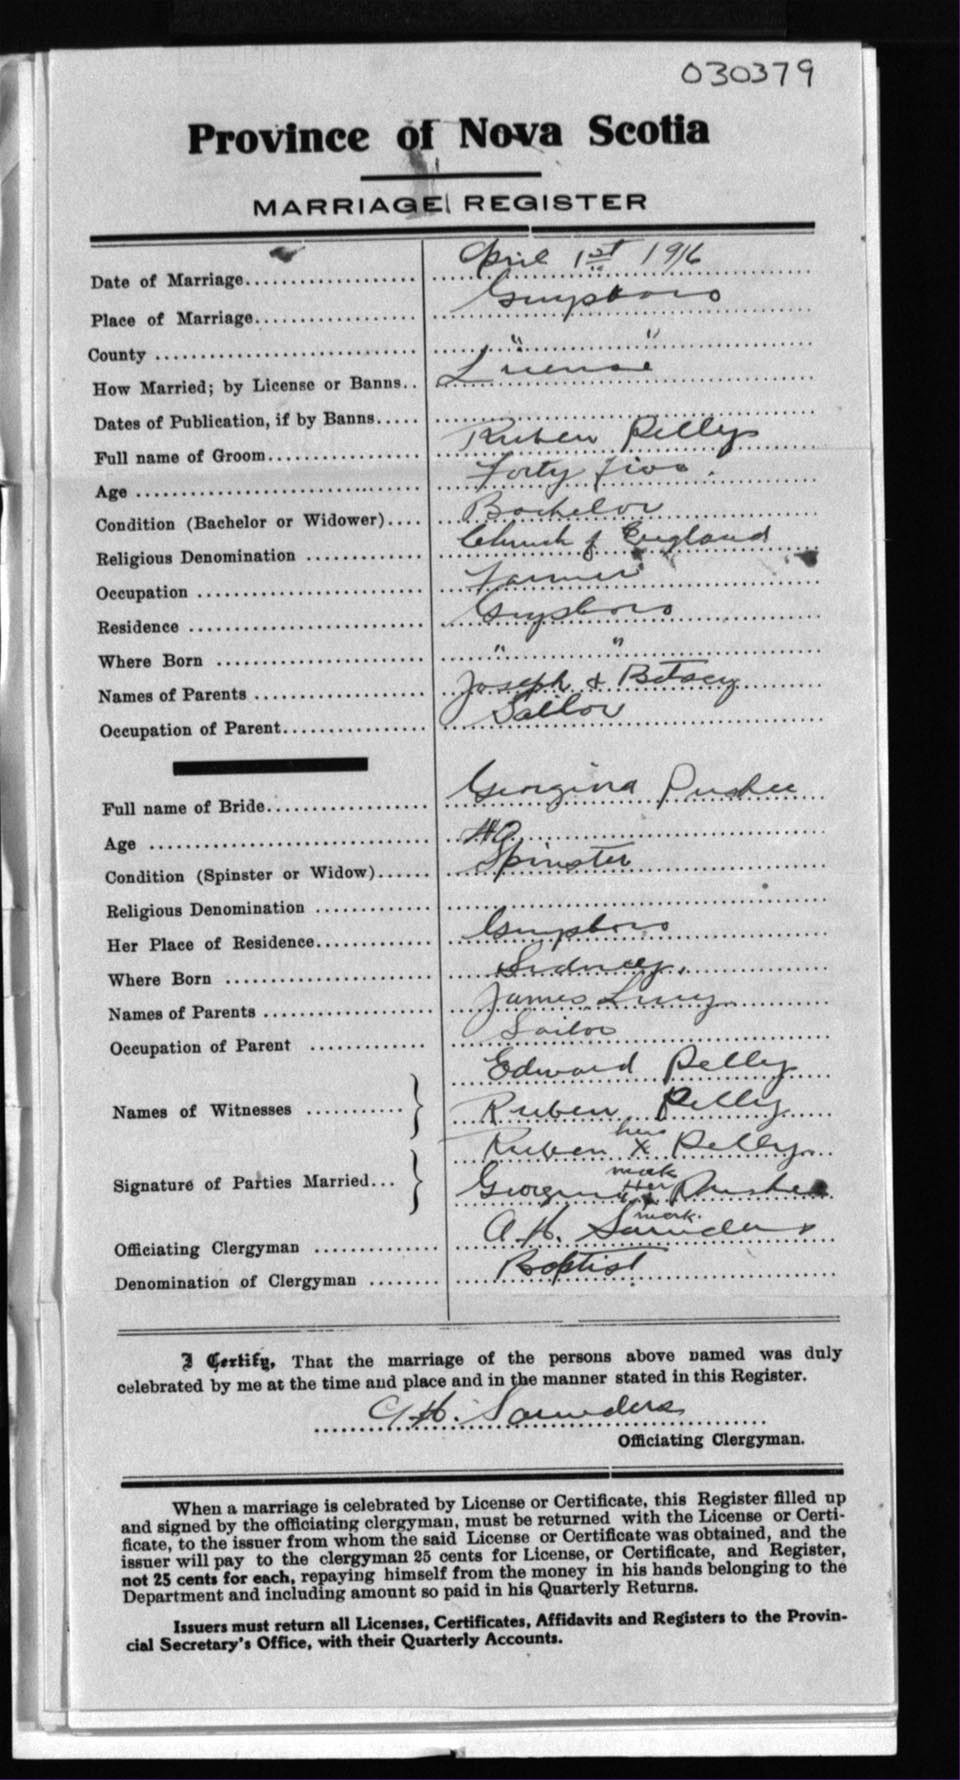 030379
Province of Nova Scotia
MARRIAGE REGISTER
Date of Marriage.................... April 1st 1916
Place of Marriage................... Guysboro
County .............................. " "
How Married; by License or Banns.. License
Dates of Publication, if by Banns.....
Full name of Groom.................. Ruben Pelly
Age ................................. Forty five.
Condition (Bachelor or Widower).... Bachelor
Religious Denomination ............. Church of England
Occupation .......................... Farmer
Residence ........................... Guysboro
Where Born ......................... " "
Names of Parents .................... Joseph & Betsey
Occupation of Parent................. Sailor
Full name of Bride................... Georgina Pushee
Age .................................
Condition (Spinster or Widow)...... Spinster
Religious Denomination .............
Her Place of Residence.............. Guysboro
Where Born ......................... Sidney.
Names of Parents .................... James Lucy
Occupation of Parent ............. Sailor
Edward Pelly
Names of Witnesses ........... Ruben Pelly
Ruben his X Pelly
mark
Signature of Parties Married... Georgina Her X Pushee
mark.
Officiating Clergyman .............. A. H. Saunders
Denomination of Clergyman ........ Baptist
I Certify, That the marriage of the persons above named was duly
celebrated by me at the time and place and in the manner stated in this Register.
A. H. Saunders
Officiating Clergyman.
When a marriage is celebrated by License or Certificate, this Register filled up
and signed by the officiating clergyman, must be returned with the License or Certi-
ficate, to the issuer from whom the said License or Certificate was obtained, and the
issuer will pay to the clergyman 25 cents for License, or Certificate, and Register,
not 25 cents for each, repaying himself from the money in his hands belonging to the
Department and including amount so paid in his Quarterly Returns.
Issuers must return all Licenses, Certificates, Affidavits and Registers to the Provin-
cial Secretary's Office, with their Quarterly Accounts.